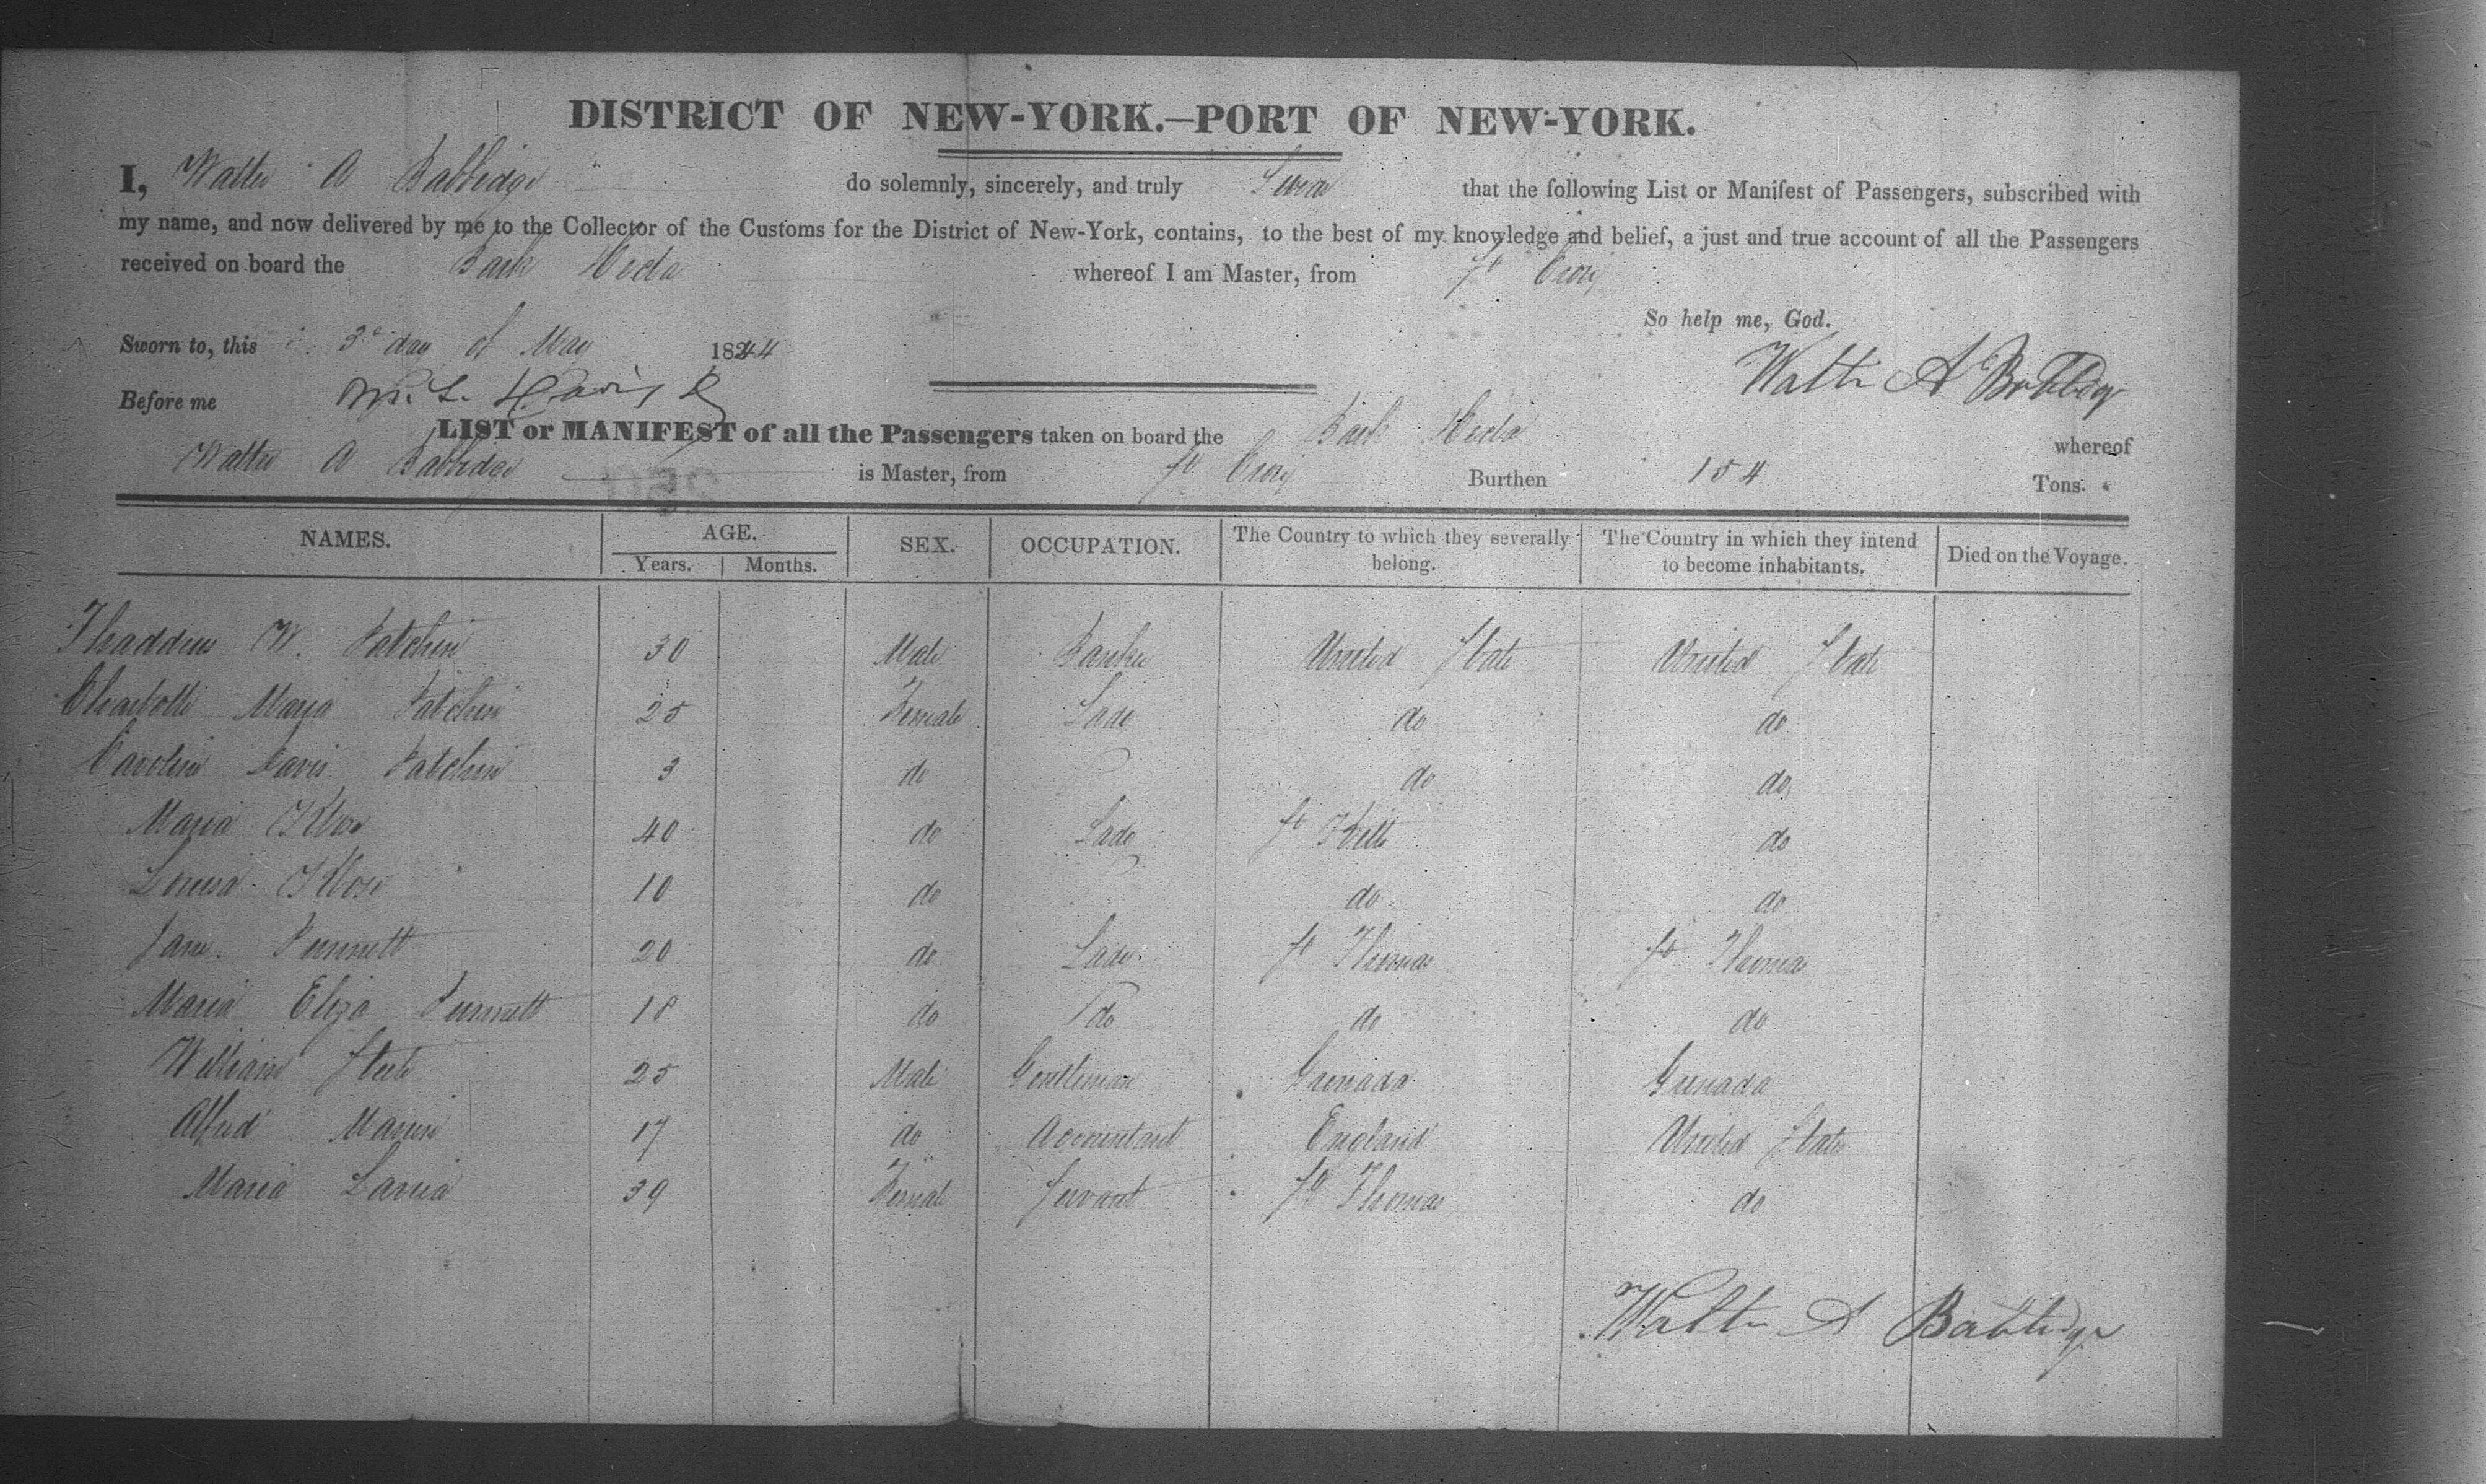 DISTRICT OF NEW-YORK.—PORT OF NEW-YORK.
I, Walter A Babbidge do solemnly, sincerely, and truly Swear that the following List or Manifest of Passengers, subscribed with
my name, and now delivered by me to the Collector of the Customs for the District of New-York, contains, to the best of my knowledge and belief, a just and true account of all the Passengers
received on board the Bark Hecla whereof I am Master, from St Croix
So help me, God.
Sworn to, this 3d day of May 1844
Walter A Babbidge
Before me
LIST or MANIFEST of all the Passengers taken on board the Bark Hecla whereof
Walter A Babbidge is Master, from St Croix Burthen 154 Tons.
NAMES. AGE. Years. Months. SEX. OCCUPATION. The Country to which they severally belong. The Country in which they intend to become inhabitants. Died on the Voyage.
Thaddeus W. Patchin 30 Male Banker United State United State
Charlotte Maria Patchin 25 Female Lade do do
Caroline Patchin 3 do do do
Maria 40 do Lade St Kitts do
Louisa 10 do do do
Jane Punnett 20 do Lade St Thomas St Thomas
Maria Eliza Punnett 18 do do do do
William Steele 25 Male Gentleman Grenada Grenada
Alfred 17 do Accountant England United State
Maria 39 Female Servant St Thomas do
Walter A Babbidge